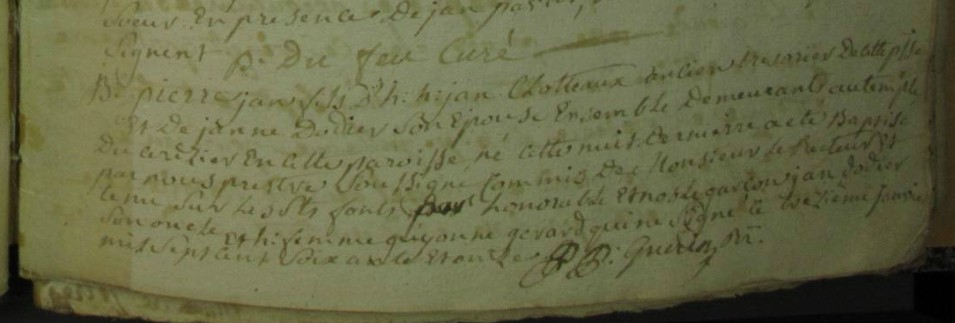 Soeur En presence De jan
Signent P. Du feu Curé
B. pierre jan fils D'h: h: jan Chotteaux ancien tresorier De cette psse
Et De janne Dodier Son Epouse Ensemble Demeurant au temple
Du cerizier En cette paroisse né cette nuit Derniere a eté Baptisé
par nous prestre Soussigné Commis De Monsieur le Recteur Et
tenu Sur les Sts fonts par honorable Et noble garcon jan Dodier
Son oncle Et h: femme guyonne gerard qui ne Signe le trezieme janvie
mil Sept cent Soixante Et onze P. Guerin ptr.